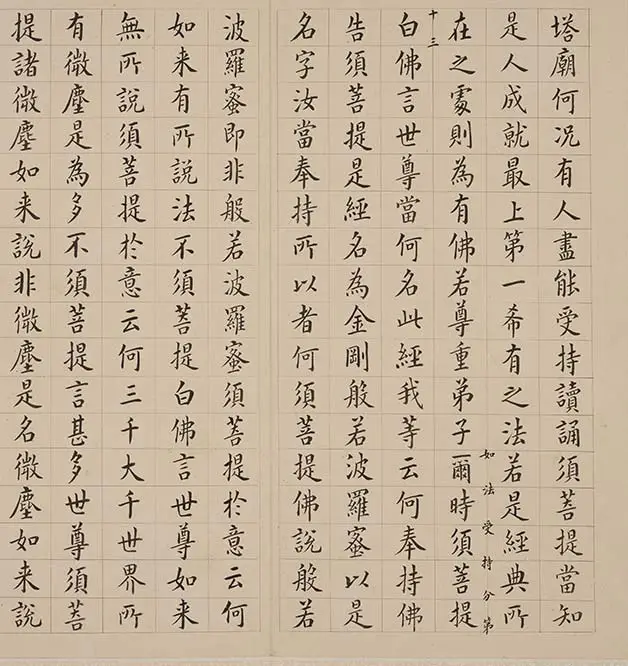 塔廟何況有人盡能受持讀誦須菩提當知
是人成就最上第一希有之法若是經典所
在之處則為有佛若尊重弟子爾時須菩提
如法受持分第
十三
白佛言世尊當何名此經我等云何奉持佛
告須菩提是經名為金剛般若波羅蜜以是
名字汝當奉持所以者何須菩提佛說般若
波羅蜜即非般若波羅蜜須菩提於意云何
如来有所說法不須菩提白佛言世尊如来
無所說須菩提於意云何三千大千世界所
有微塵是為多不須菩提言甚多世尊須菩
提諸微塵如来說非微塵是名微塵如来說